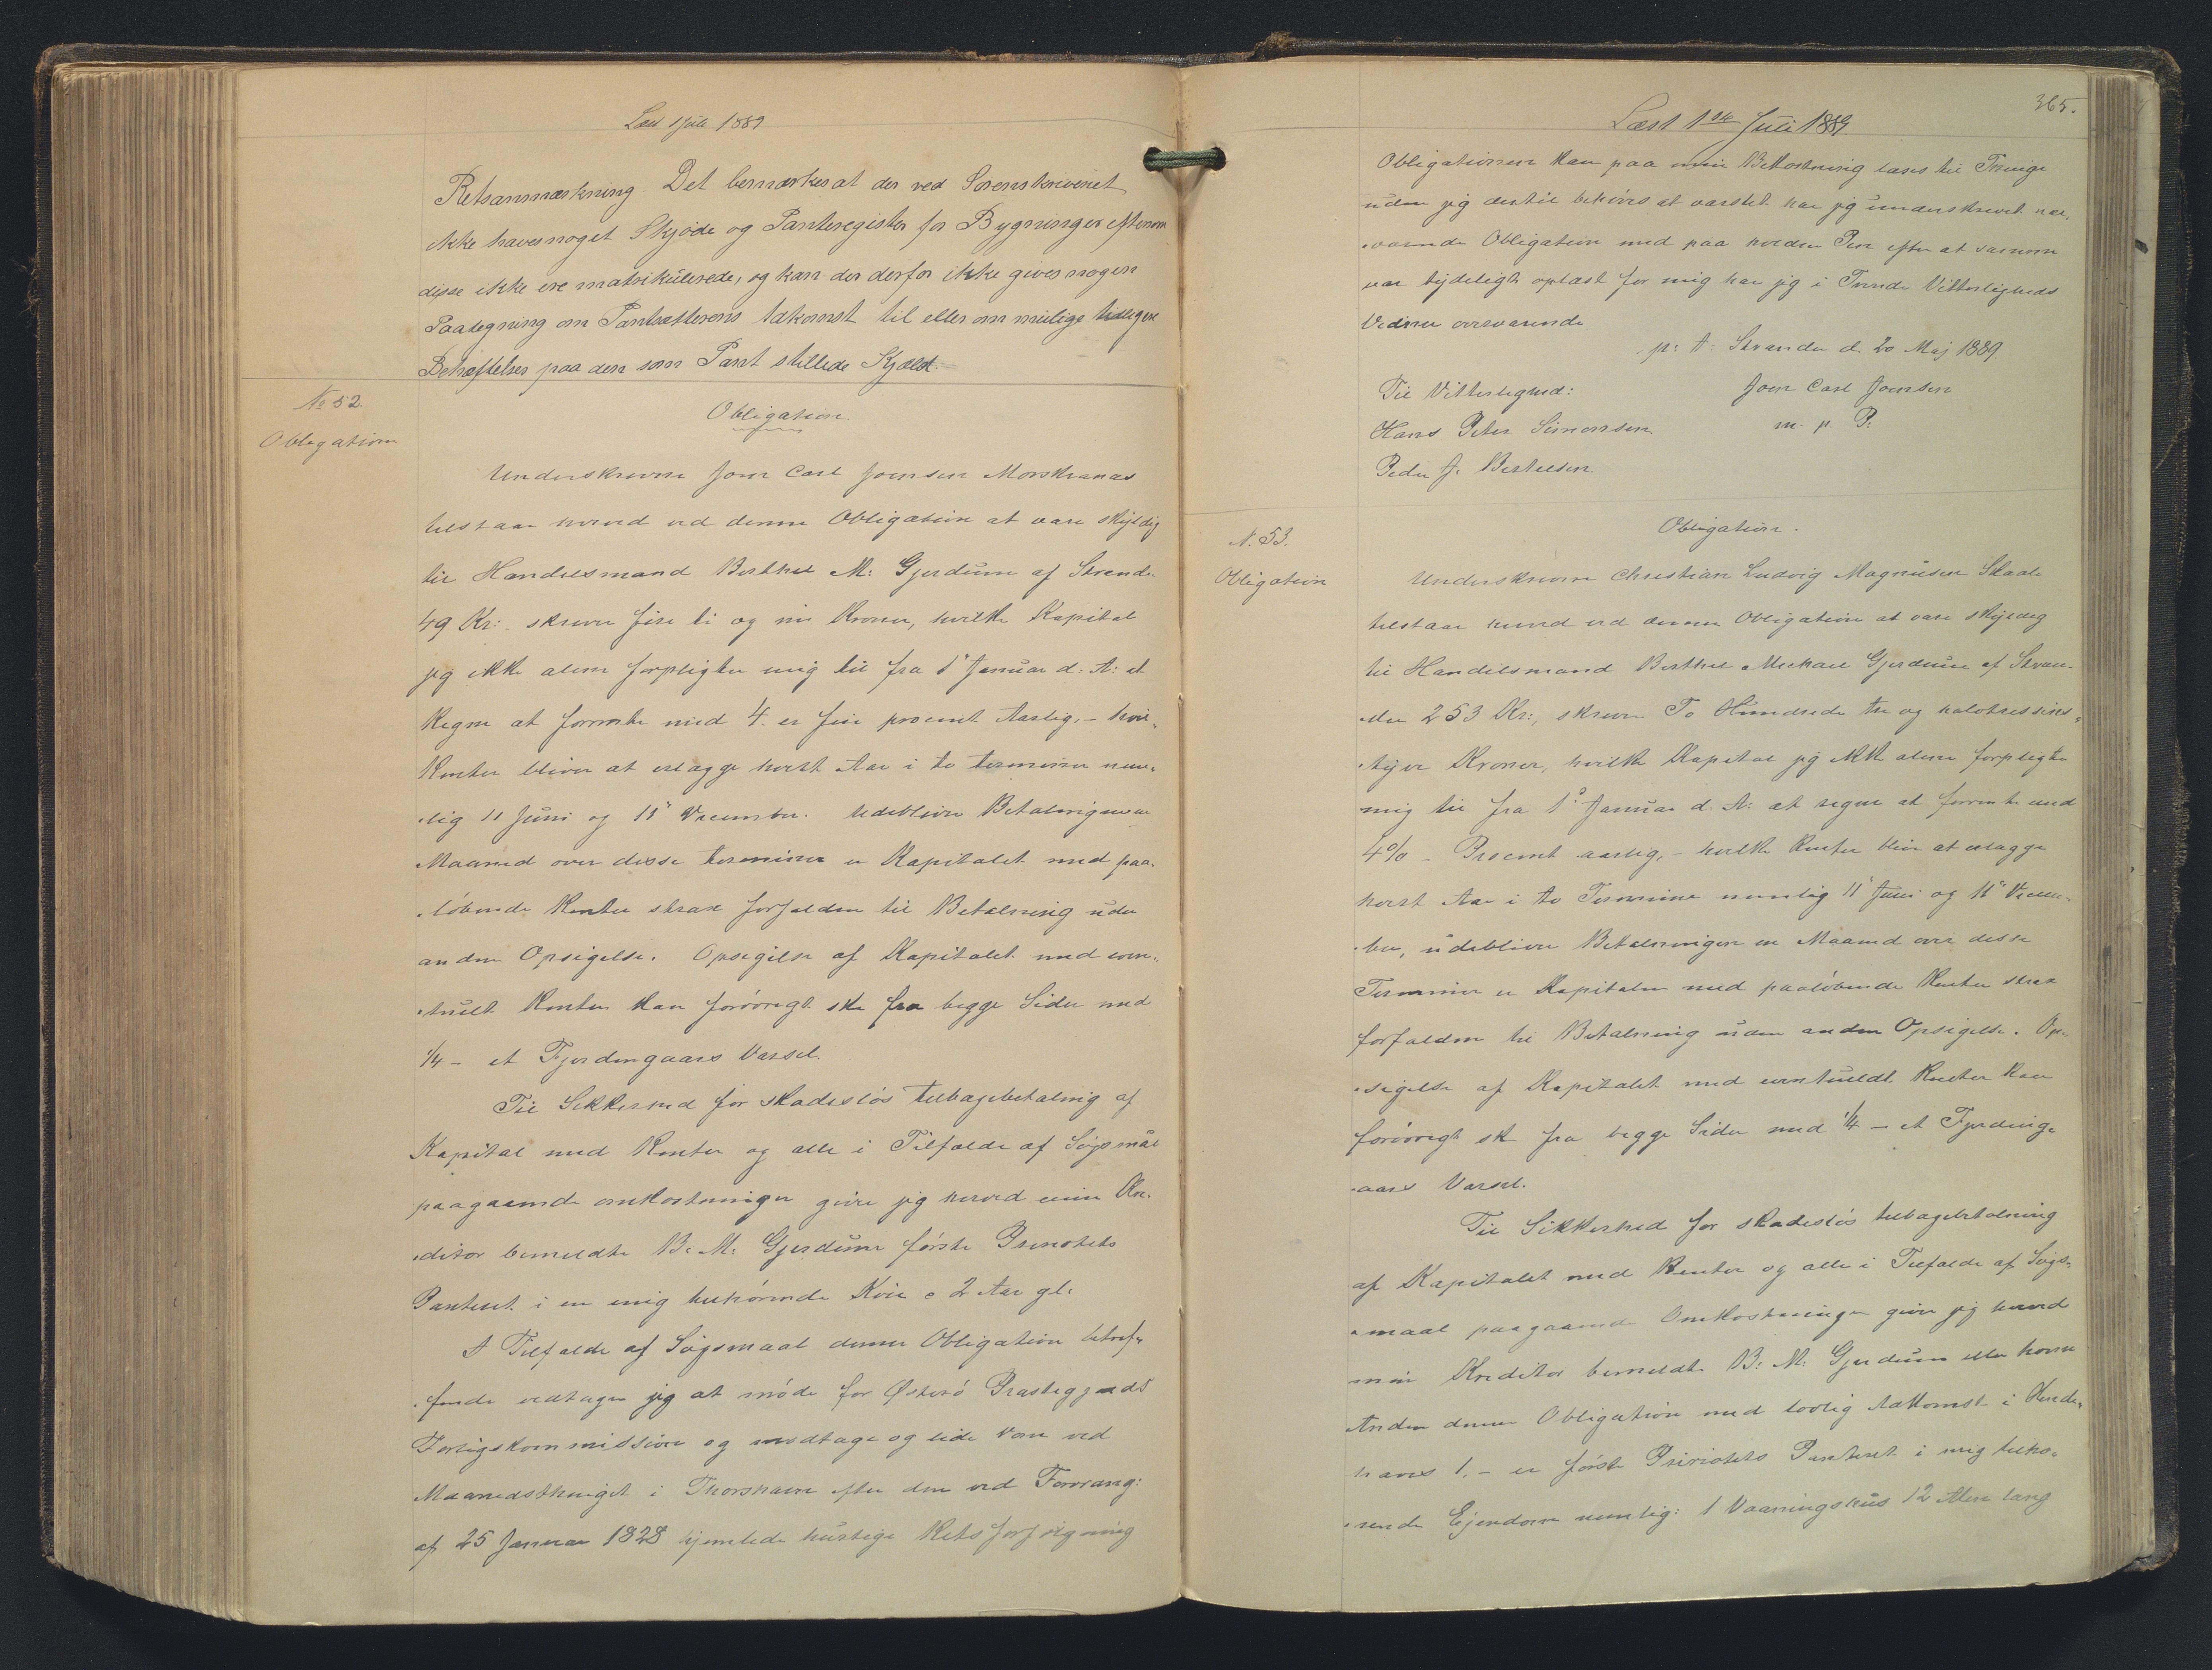 Læst 1 Juli 1889
Retsanmærkning Det bemærkes at der ved Sorenskriveriet
ikke haves noget Skjøde og Panteregister for Bygninger eftersom
disse ikke ere matrikulerede, og kan der derfor ikke gives nogen
Paategning om Pantsætterens Adkomst til eller om mulige tidligere
Behæftelser paa den som Pant stillede Kjæld.
No 52.
Obligation
Obligation.
Underskrevne Joen Carl Joensen Morskranes
tilstaar herved ved denne Obligation at være skyldig
til Handelsmand Berthel M: Gjerdum af Strender
49 Kr: skriver fire ti og ni Kroner, hvilke Kapital
jeg ikke alene forpligter mig til fra 1' Januar d: A: at
Regne at forrente med 4. er fire procent Aarlig, - hvil-
Renter bliver at erlægge hvert Aar i to terminer nem-
-lig 11 Juni og 11" December. Udebliver Betalingen en
Maaned over disse terminer er Kapitalet med paa-
-løbende Renter strax forfalden til Betalning uden
anden Opsigelse. Opsigelse af Kapitalet med even-
-tuelt Renter kan forøvrigt ske fra begge Sider med
1/4 - et Fjerdingaars Varsel.
Til Sikkerhed for skadesløs tilbagebetaling af
Kapital med Renter og alle i Tilfælde af Søgsmål
paagaaende omkostninger giver jeg herved min Kre-
-ditor bemeldte B: M: Gjerdum første Prioritets
Panteret i en mig tilhørende Koie a 2 Aar gl:
I Tilfælde af Søgsmaal denne Obligation betref-
-fende vedtager jeg at møde for Østerø Præstegjælds
Forligskommission og modtage og lide Dom ved
Maanedsthinget i Thorshavn efter den ved Forrang:
af 25 Januar 1828 hjemlede hurtige Retsforfølgning
365.
Læst 1ste Juli 1889
Obligationen kan paa min Bekostning læses til Thinge
uden jeg dertil behøves at varslet har jeg underskrevet nær-
-værende Obligation med paa holden Pen efter at samme
var tydeligt oplæst for mig har jeg i Tvende Vitterligheds
Vidner overværende
p: t: Strender d. 20 Maj 1889.
Til Vitterlighed: Joen Carl Joensen
Hans Peter Simonsen m. p. P.
Peder J. Bertelsen.
N. 53.
Obligation
Obligation.
Underskrevne Christian Ludvig Magnusen Skaale
tilstaar herved ved denne Obligation at være skyldig
til Handelsmand Berthel Michael Gjerdum af Stren-
-der 253 Kr:, skriver To Hundrede tre og halvtressins-
-tyve Kroner, hvilke Kapital jeg ikke alene forpligter
mig til fra 1' Januar d. A: at regne at forrente med
4% - Procent aarlig, - hvilke Renter blive at erlægge
hvert Aar i to Terminer nemlig 11' Juni og 11" Decem-
-ber, udebliver Betalningen en Maaned over disse
Terminer er Kapitalen med paaløbende Renter strax
forfalden til Betalning uden anden Opsigelse. Op-
-sigelse af Kapitalet med eventueldt Renter kan
forøvrigt sk fra begge Sider med 1/4 - et Fjerdings
-aars Varsel.
Til Sikkerhed for skadesløs tilbagebetalning
af Kapitalet med Renter og alle i Tilfælde af Søgs-
-maal paagaaende Omkostninger giver jeg herved
min Kreditor bemeldte B: M: Gjerdum eller hvem
Anden denne Obligation med lovlig Adkomst i Hænde
haves 1. - er første Prioritets Panteret i mig tilhø-
-rende Ejendom nemlig: 1 Vaaningshus 12 Alen lang